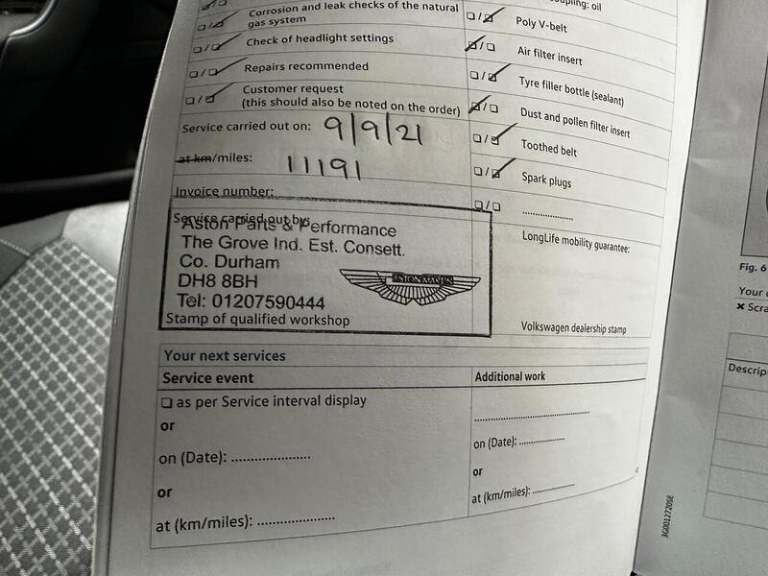 Corrosion and leak checks of the natural
gas system
Check of headlight settings
Repairs recommended
Customer request
(this should also be noted on the order)
Service carried out on: 9/9/21
at km/miles: 11191
Invoice number:
Service carried out by:
Aston Parts & Performance
The Grove Ind. Est. Consett.
Co. Durham
DH8 8BH
Tel: 01207590444
ASTON MARTIN
Stamp of qualified workshop
oil
Poly V-belt
Air filter insert
Tyre filler bottle (sealant)
Dust and pollen filter insert
Toothed belt
Spark plugs
LongLife mobility guarantee:
Volkswagen dealership stamp
Your next services
Service event
Additional work
as per Service interval display
or
on (Date):
or
at (km/miles):
on (Date):
or
at (km/miles):
3G0012720SE
Fig. 6
Your
Descrip